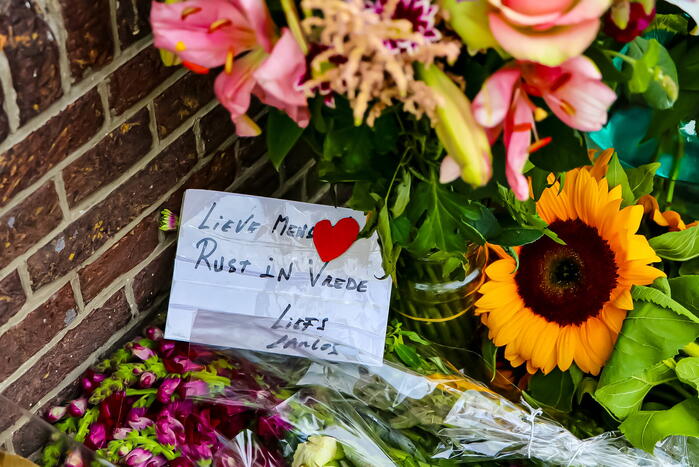 Lieve
Rust in Vrede
Liefs
Carlos